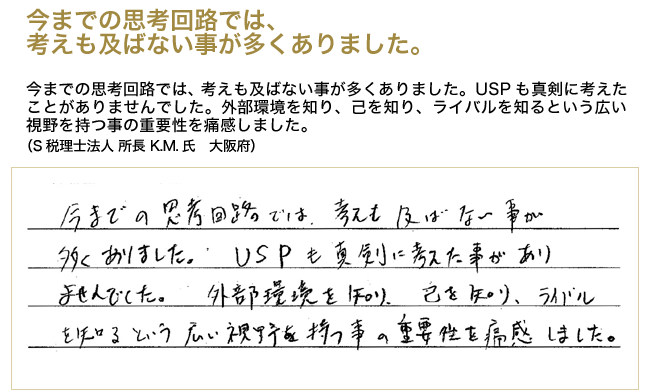 今までの思考回路では、
考えも及ばない事が多くありました。
今までの思考回路では、考えも及ばない事が多くありました。USPも真剣に考えた
ことがありませんでした。外部環境を知り、己を知り、ライバルを知るという広い
視野を持つ事の重要性を痛感しました。
（S税理士法人 所長 K.M.氏　大阪府）
今までの思考回路では、考えも及ばない事が
多くありました。USPも真剣に考えた事があり
ませんでした。外部環境を知り、己を知り、ライバル
を知るという広い視野を持つ事の重要性を痛感しました。